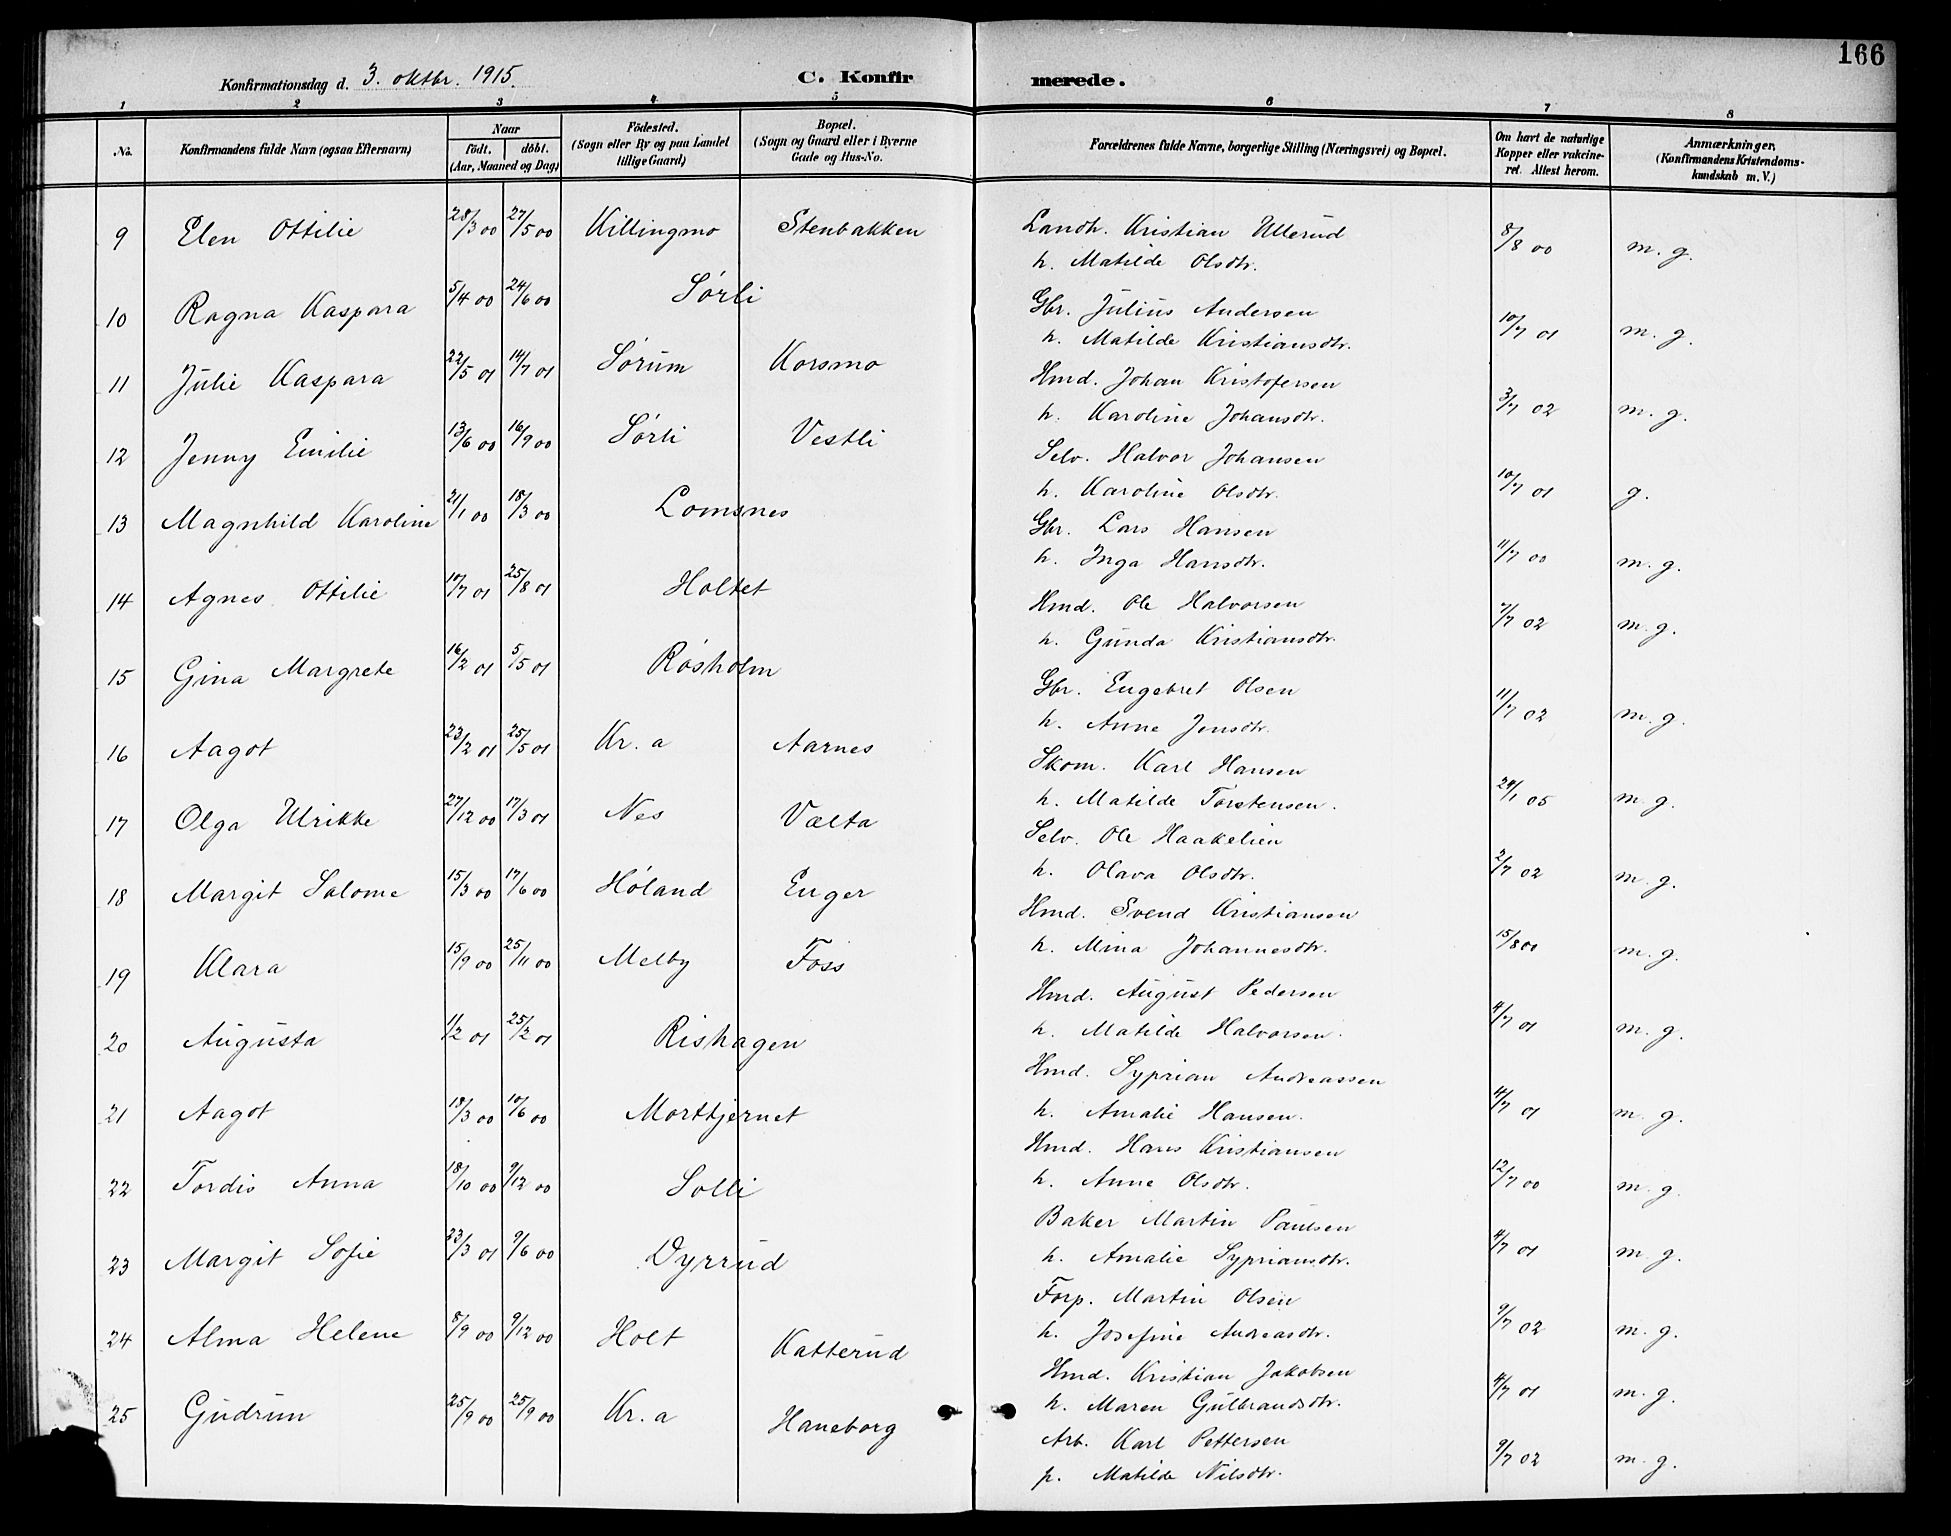 166
Konfirmationsdag d. 3. oktbr. 1915. C. Konfirmerede.
1 2 3 4 5 6 7 8
No. Konfirmandens fulde Navn (ogsaa Efternavn) Naar födt. döbt. (Aar, Maaned og Dag) Födested. (Sogn eller By og paa Landet tillige Gaard) Bopæl. (Sogn og Gaard eller i Byerne Gade og Hus-No. Forældrenes fulde Navne, borgerlige Stilling (Næringsvei) og Bopæl. Om havt de naturlige Kopper eller vakcineret. Attest herom. Anmærkninger. (Konfirmandens Kristendomskundskab m. V.)
9 Elen Ottilie 28/3 00 27/5 00 Killingmo Stenbakken Landh. Kristian Ullerud 8/8 00 m. g.
h. Matilde Olsdtr.
10 Ragna Kaspara 5/4 00 24/6 00 Sørli Gbr. Julius Andersen 10/7 01 m. g.
h. Matilde Kristiansdtr.
11 Julie Kaspara 22/5 01 14/7 01 Sørum Korsmo Hmd. Johan Kristofersen 3/7 02 m. g.
h. Karoline Johansdtr.
12 Jenny Emilie 13/6 00 16/9 00 Sørli Vestli Selv. Halvor Johansen 10/7 01 g.
h. Karoline Olsdtr.
13 Magnhild Karoline 21/1 00 18/3 00 Lomsnes Gbr. Lars Hansen 11/7 00 m. g.
h. Inga Hansdtr.
14 Agnes Ottilie 10/7 01 25/8 01 Holtet Hmd. Ole Halvorsen 7/7 02 m. g.
h. Gunda Kristiansdtr.
15 Gina Margrete 16/2 01 5/5 01 Røsholm Gbr. Engebret Olsen 11/7 02 m. g.
h. Anne Jensdtr.
16 Aagot 23/2 01 25/5 01 Kr. a Aarnes Skom. Karl Hansen 24/1 05 m. g.
h. Matilde Torstensen.
17 Olga Ulrikke 27/12 00 17/3 01 Nes Vælta Selv. Ole Haakelien 2/7 02 m. g.
h. Olava Olsdtr.
18 Margit Salome 15/3 00 17/6 00 Høland Enger Hmd. Svend Kristiansen 15/8 00 m. g.
h. Mina Johannesdtr.
19 Klara 15/9 00 25/11 00 Melby Foss Hmd. August Pedersen 4/7 01 m. g.
h. Matilde Halvorsen.
20 Augusta 1/2 01 25/2 01 Rishagen Hmd. Syprian Andreassen 4/7 01 m. g.
h. Amalie Hansen.
21 Aagot 18/3 00 10/6 00 Morttjernet Hmd. Hans Kristiansen 12/7 00 m. g.
h. Anne Olsdtr.
22 Tordis Anna 18/10 00 9/12 00 Solli Baker Martin Paulsen 4/7 01 m. g.
h. Amalie Sypriansdtr.
23 Margit Sofie 23/3 01 9/6 00 Dyrrud Forp. Martin Olsen 9/7 02 m. g.
h. Josefine Andreasdtr.
24 Alma Helene 8/9 00 9/12 00 Holt Katterud Hmd. Kristian Jakobsen 4/7 01 m. g.
h. Maren Gulbrandsdtr.
25 Gudrun 25/9 00 25/9 00 Kr. a Haneborg Arb. Karl Pettersen 9/7 02 m. g.
p. Matilde Nilsdtr.